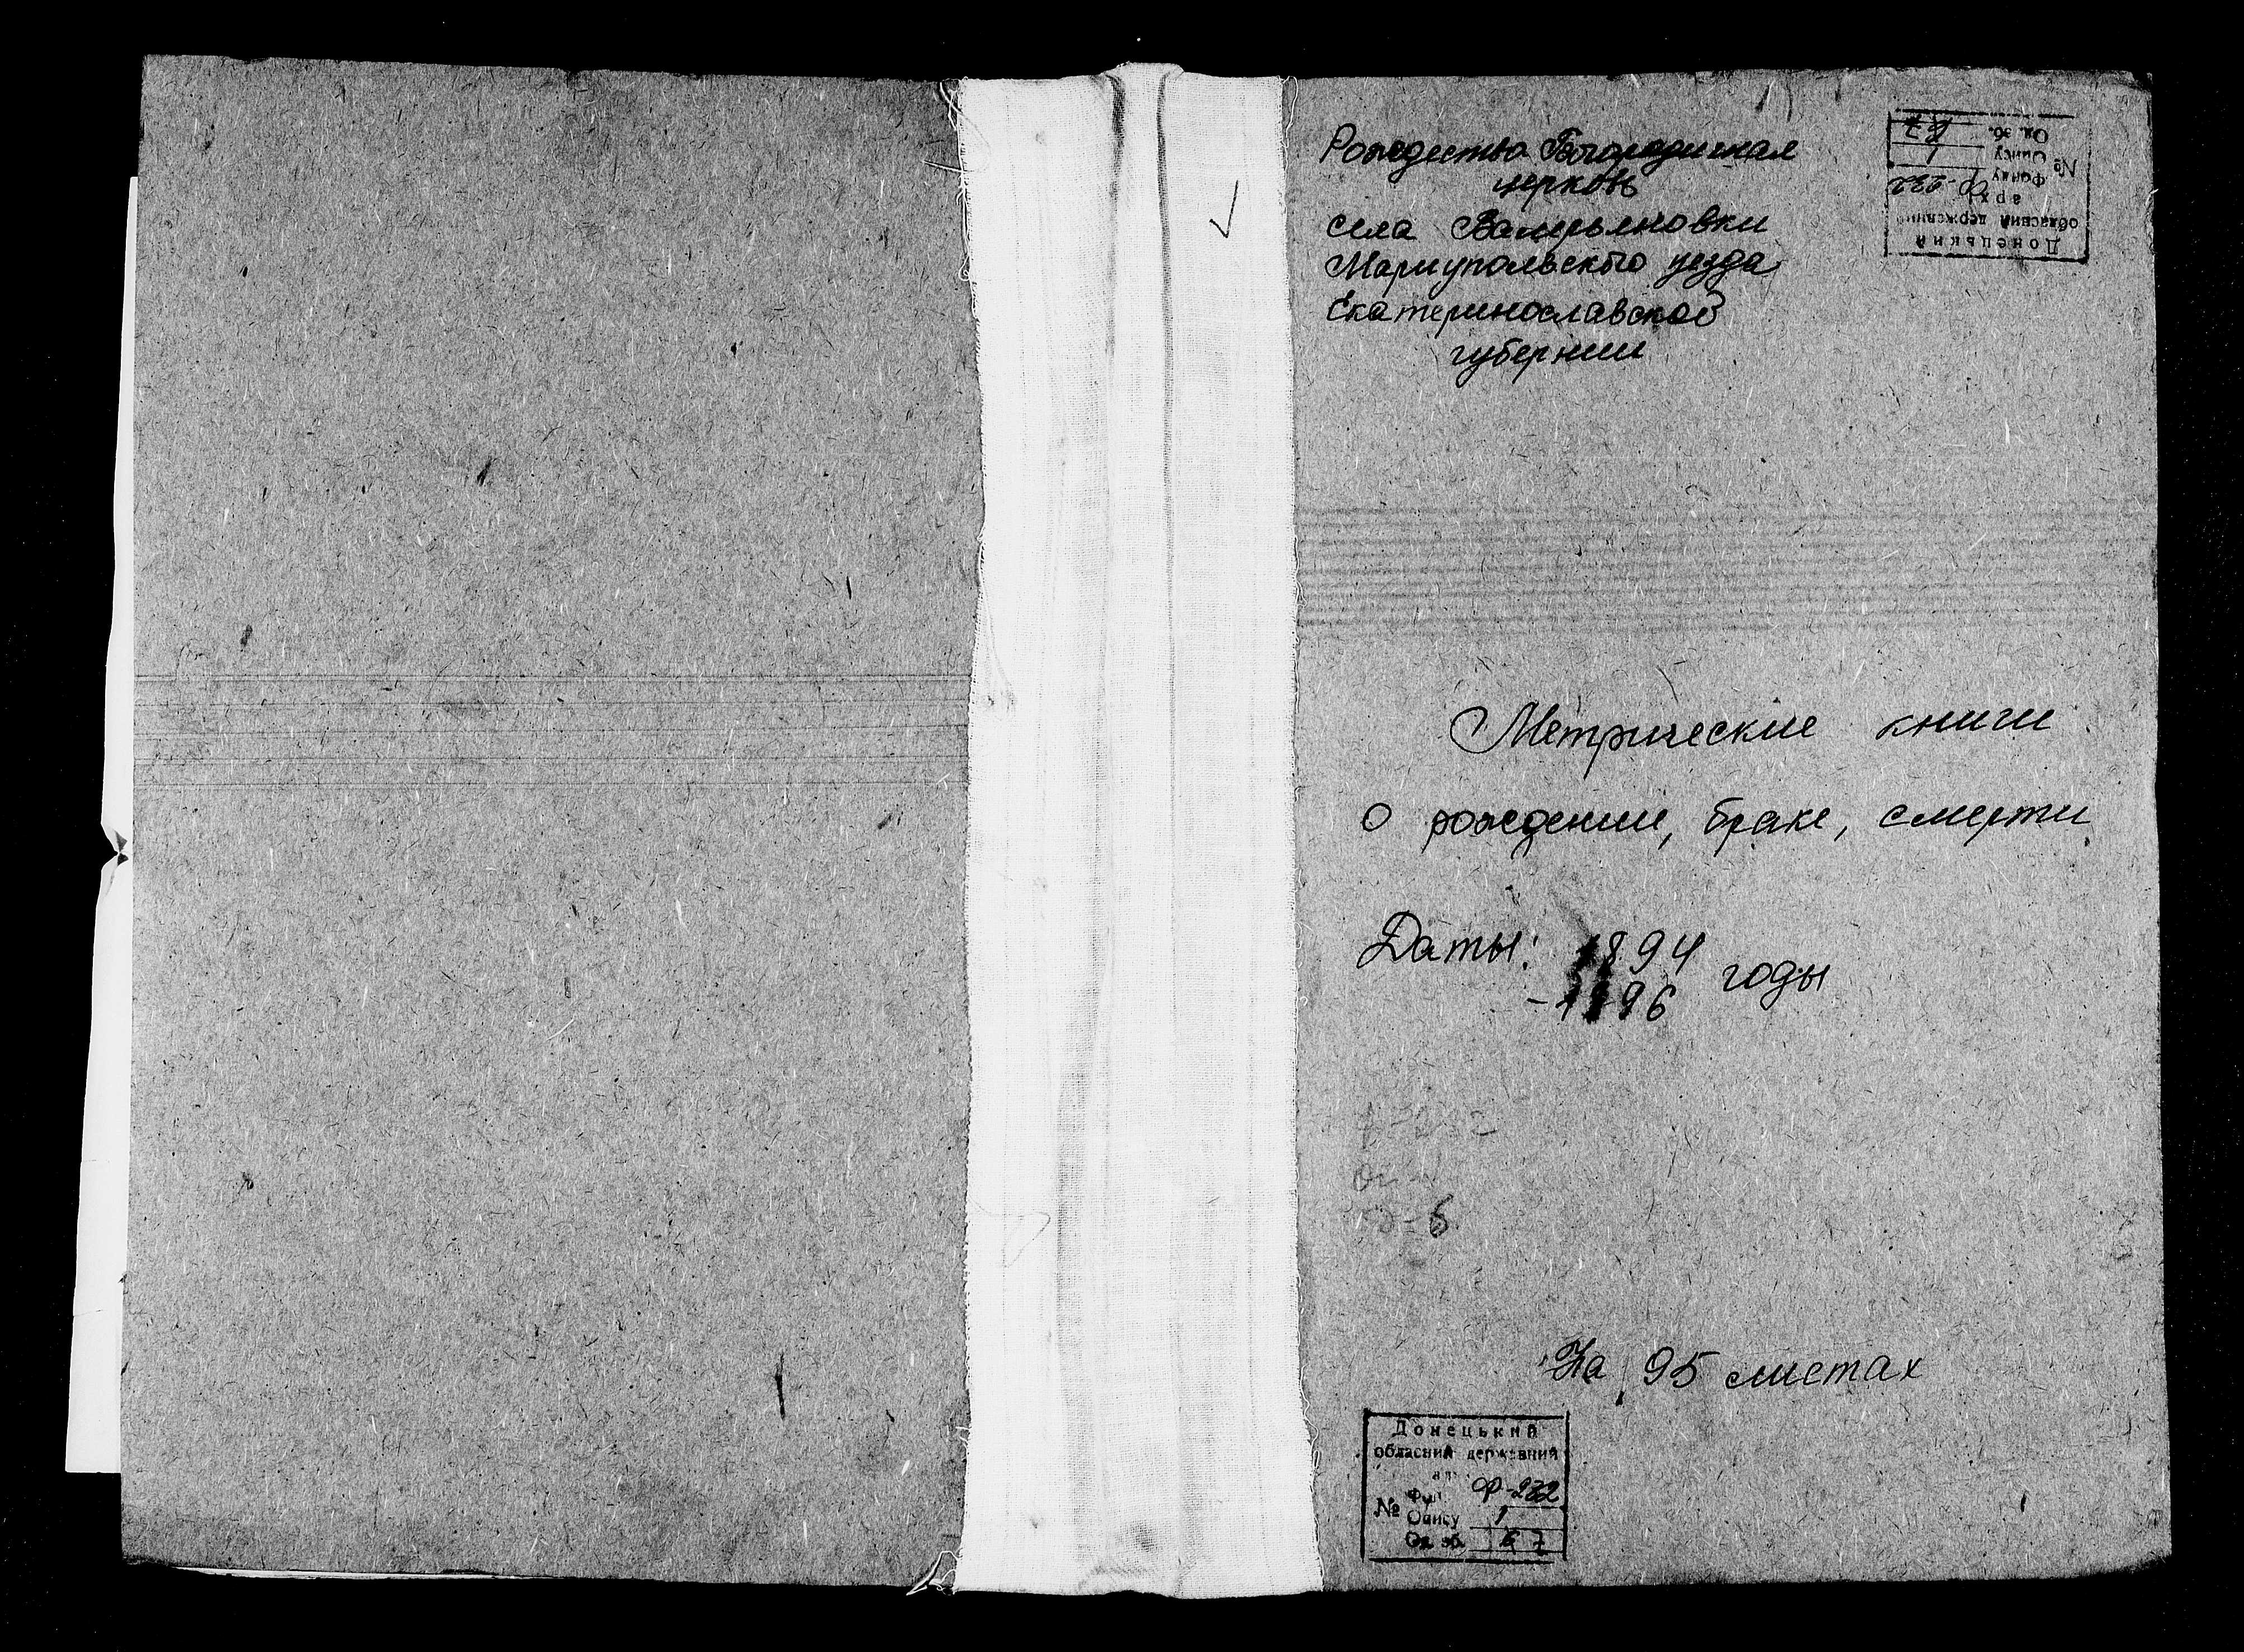 Рождество Богородичная
церковь
села Валерьяновки
Мариупольского уезда
Екатеринославской
губернии
Донецький
обласний державний
арх
№ Фонду Ф-232
Опису 1
Од. зб.
Метрические книги
о рождении, браке, смерти
Даты: 1894
-1896 годы
На 95 листах
Донецький
обласний державний
№ Ф-232
Опису 1
Од. зб.